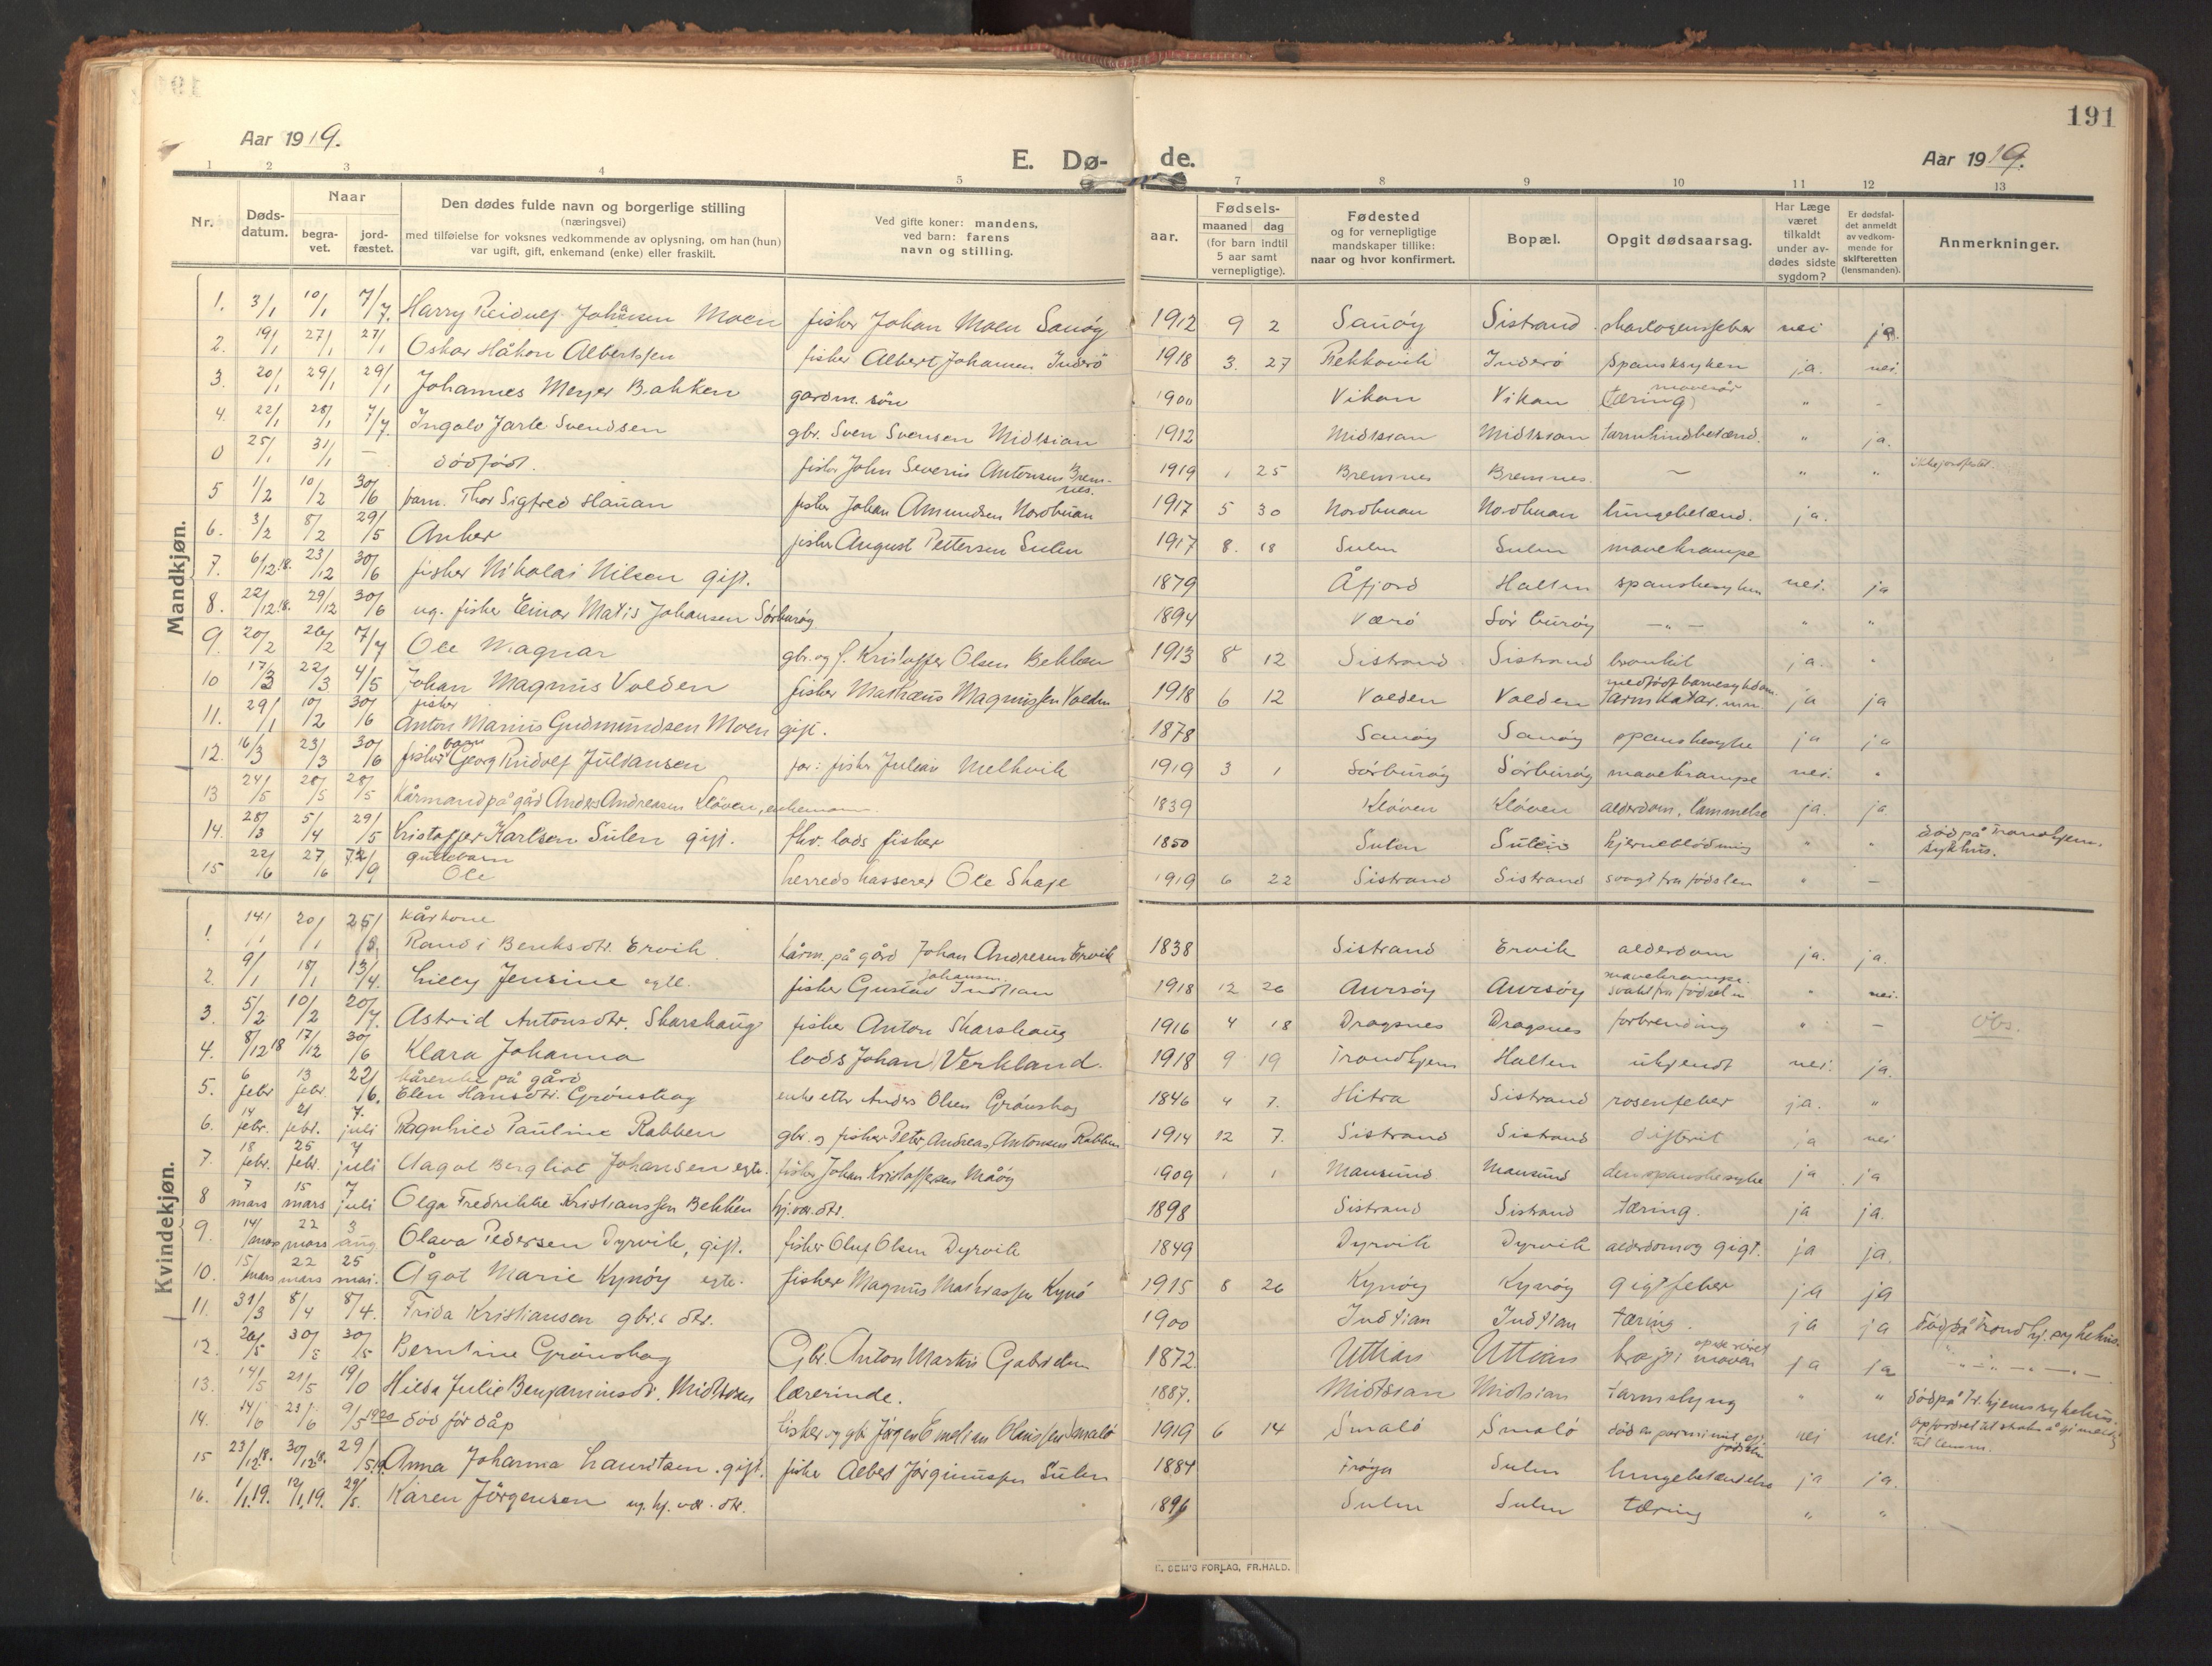 191
Aar 1919.
E. Dø-
de.
Aar 1919.
1 2 3 4 5 7 8 9 10 11 12 13
Nr.
Døds-
datum.
Naar
begra-
vet.
jord-
fæstet.
Den dødes fulde navn og borgerlige stilling
(næringsvei)
med tilføielse for voksnes vedkommende av oplysning, om han (hun)
var ugift, gift, enkemand (enke) eller fraskilt.
Ved gifte koner: mandens,
ved barn: farens
navn og stilling.
aar.
Fødsels-
maaned dag
(for barn indtil
5 aar samt
vernepligtige).
Fødested
og for vernepligtige
mandskaper tillike:
naar og hvor konfirmert.
Bopæl.
Opgit dødsaarsag.
Har Læge
været
tilkaldt
under av-
dødes sidste
sygdom?
Er dødsfal-
det anmeldt
av vedkom-
mende for
skifteretten
(lensmanden).
Anmerkninger.
Mandkjøn.
1. 3/1 10/1 7/7. Harry Reidulf Johansen Moen fisker Johan Moen Sauøy 1912 9 2 Sauøy Sistrand nei ja.
2. 19/1 27/1 27/1 Oskar Håkon Albertssen fisker Albert Johansen Inderö 1918 3. 27 Inderö spansksyken ja. nei.
3. 20/1 29/1 29/1 Johannes Meyer Bakken gardm. sön 1900 Vikan Vikan (tæring) " -
4. 22/1 28/1 7/7. Ingolv Jarle Svendsen gbr. Sven Svensen Midtsian 1912 Midtsian Midtsian tarmhindbetænd. " ja.
0 25/1 31/1 - dödfödt. fisker John Severin Antonsen Bremnes. 1919 1 25 Bremnes Bremnes. ~ " "
5 1/2 10/2 30/6 barn. Thor Sigfred Hauan fisker Johan Amundsen Nordbuan 1917 5 30 Nordbuan Nordbuan lungebetænd. ja.
6. 3/2 8/2 29/5 Anker fisker August Pettersen Sulen 1917 8. 18 Sulen Sulen mavekrampe
7. 6/12.18. 23/12 30/6 fisker Nikolai Nilsen gift. 1879 Åfjord Halten spanskesyken nei. ja
8. 22/12.18. 29/12 30/6 ug. fisker Einar Matis Johansen Sörburöy 1894 Værö Sör burøy -"- " "
9. 20/2 26/2 7/7 Ole Magnar gbr. og f. Kristoffer Olsen Bekken 1913 8 12 Sistrand Sistrand bronkit ja. "
10 17/3 22/3 4/5 Johan Magnus Valden fisker Mathæus Magnussen Valden 1918 6 12 Valden Valden medfödt barnesykdom. tarmkatar. ja ja
11. 29/1 10/2 30/6 fisker Anton Marius Gudmundsen Moen gift. 1878 Sauöy Sauöy spanskesyke ja ja
12. 16/3 23/3 30/6 fisker barn Georg Rudolf Juldansen far: fisker Julian Melkvik 1919 3 1 Sörburöy Sörburöy mavekrampe nei. "
13 24/5 28/5 28/5 Kårmand på gård Anders Andreasen Klöven, enkemann 1839 Klöven Klöven alderdom, lammelse ja. ja.
14. 28/3 5/4 29/5 Kristoffer Karlsen Sulen gift. fhv. lods fisker 1850 Sulen Sulen hjerneblödning " " död på Trondhjem. sykhus.
15 22/6 27/6 guttebarn Ole herredskasserer Ole Skage 1919 6 22 Sistrand Sistrand svagt fra födslen " -
Kvindekjøn.
1. 14/1 20/1 25/ Kårkone Randi Benksdtr. Ervik. kårm. på gård Johan Andresen Ervik 1838 Sistrand Ervik alderdom ja. ja.
2. 9/1 18/1 13/4. Lilly Jensine egte. fisker Gustav Johansen Indtian 1918 12 26 Aursöy Aursöy mavekrampe. svakt fra födselen " nei.
3. 5/2 10/2 20/7. Astrid Antonsdtr. Skarshaug fisker Anton Skarshaug 1916 4 18 Dragsnes Dragsnes forbrending " - Obs.
4. 8/12 18 17/12 30/6 Klara Johanna lods Johan Verkland. 1918 9 19 Trondhjem Halten ukjendt nei. ja.
5. 6 febr 13 febr. 22/6. kårenke på gård Elen Hansdtr. Grönskag enke etter Anders Olsen Grönskag 1846 4 7. Hitra Sistrand rosenfeber ja. "
6. 14 febr. 21 febr. 7. juli Ragnhild Pauline Rabben gbr. og fisker Peter Andreas Antonsen Rabben 1914 12 7. Sistrand Sistrand difterit ja nei
7. 18 febr. 25 febr. 7 juli Aagot Bergliot Johansen egte. fisker Johan Kristoffersen Måöy 1909 1 1 Mausund Mausund den spanskesyke ja ja
8 7 mars 15 mars 7 juli Olga Fredrikke Kristianssen Bekken hj.vær. dtr. 1898 Sistrand Sistrand tæring. ja ja.
9. 14/ mars 22 mars 3 aug. Olava Pedersen Dyrvik, gift. fisker Oluf Olsen Dyrvik 1849 Dyrvik Dyrvik alderdom og gigt. ja ja.
10. 15/ mars 22 mars 25 mai. Ågot Marie Kynöy egte. fisker Magnus Mathiassen Kynö 1915 8 26 Kynöy Kynöy gigtfeber ja ja
11. 31/3 8/4 8/4. Frida Kristiansen gbr. dtr. 1900 Indtian Indtian tæring. ja ja död på Trondhj. sykehus.
12. 20/5 30/5 30/5 Berntine Grönskag Gbr. Anton Martin Gabrielsen 1872 Uttian Uttian kræft operert maven ja ja " - " - " -
13. 14/5 21/5 19/0 Hilda Julie Benjaminsdtr. Midtsian lærerinde. 1887. Midtsian Midtsian tarmslyng " " död på Tr.hjems sykehus.
14. 14/6 23/6 9/5 1920 död för dåp fisker og gbr. Jörgen Emelian Olaussen Smalö 1919 6 14 Smalö Smalö nei nei.
15 23/12.18. 30/12.18. 29/5. Anna Johanna Lauritsen. gift. fisker Albert Jörginussen Sulen 1884 Fröya Sulen lungebetændelse ja ja.
16. 1/1.19. 12/1.19. 29/5. Karen Jörgensen ug. hj. vær. dtr. 1896 Sulen Sulen tæring " "
FORLAG, FR.HALD.